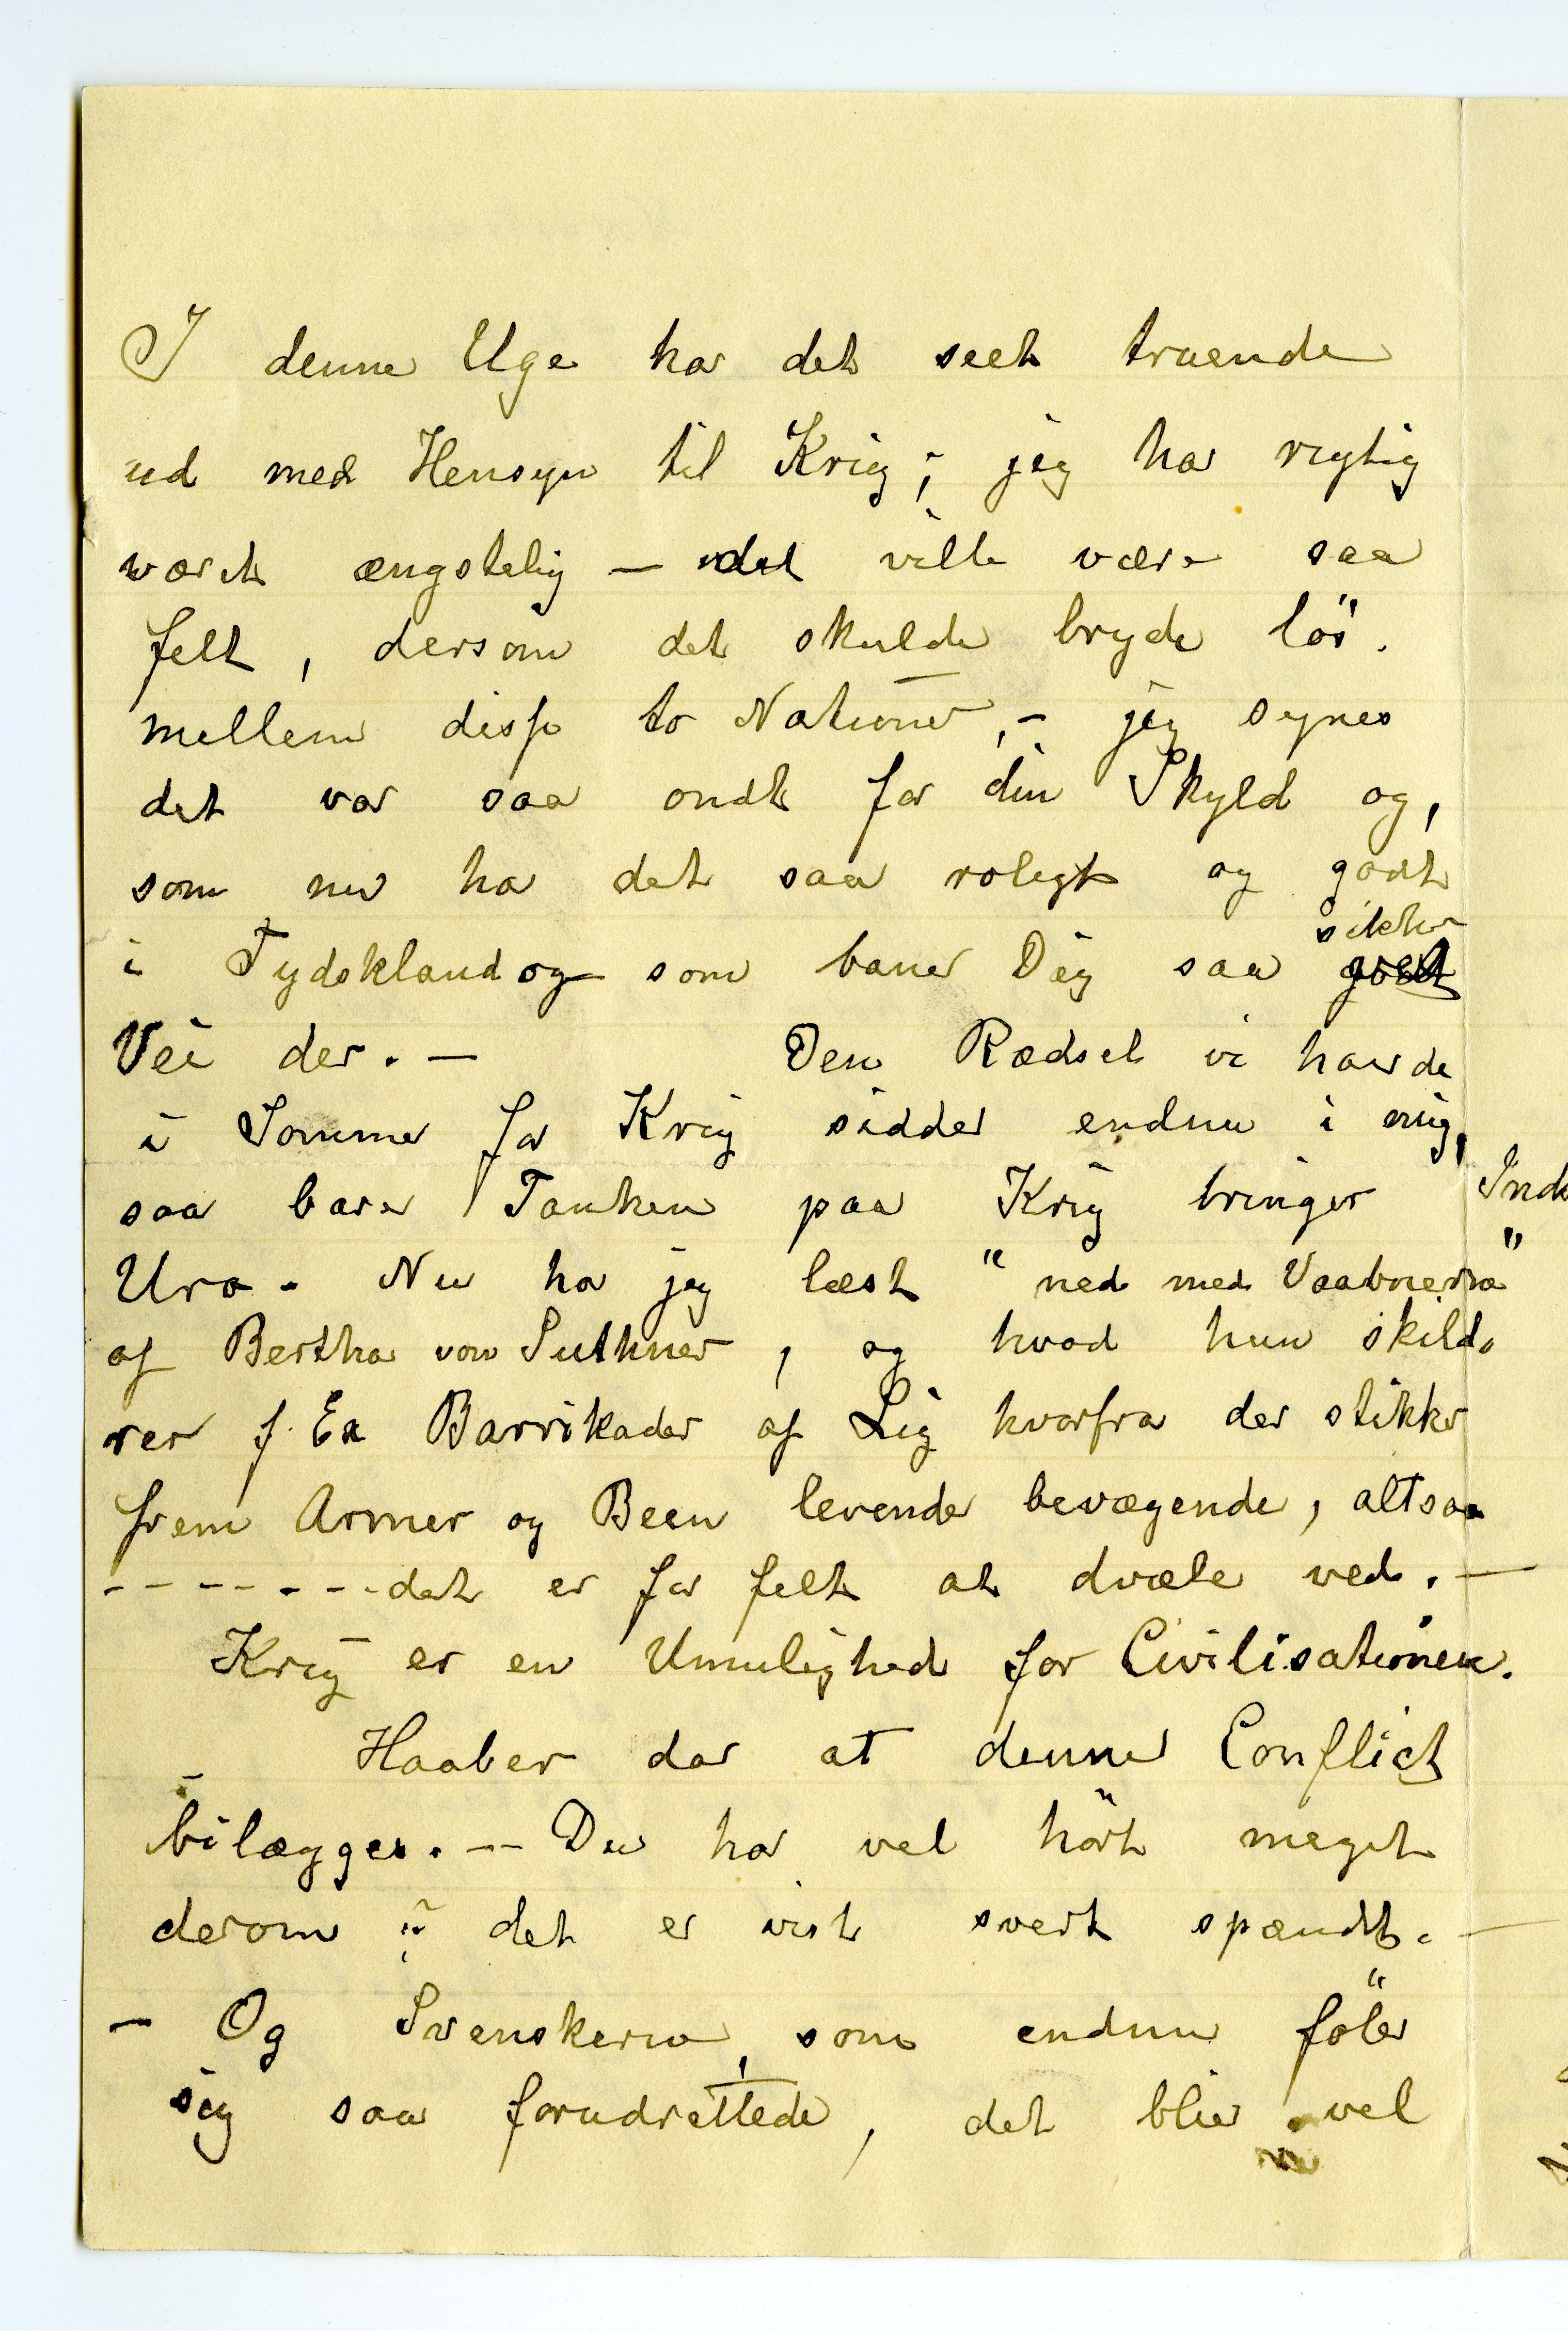 I denne Uge har det seet truende
ud med Hensyn til Krig; jeg har rigtig
været ængstelig – det ville være saa
fælt, dersom det skulde bryde lös.
mellem disse to Nationer, – jeg synes
det var saa ondt for din Skyld og,
som nu har det saa roligt og godt
i Tydskland og som baner Dig saa sikker godt
Vei der. – Den Rædsel vi havde
i Sommer for Krig sidder endnu i mig,
saa bare Tanken paa Krig bringer
Uro. Nu har jeg læst "ned med Vaabnene"
af Bertha von Suttner, og hvad hun skild-
rer f. Ex Barrikader af Lig hvorfra der stikker
frem Armer og Been levende bevægende, altsaa
------- det er for fælt at dvæle ved. –
Krig er en Umulighed for Civilisationen.
Haaber dar at denne Conflict
bilægges. – Du har vel hört meget
derom; det er vist svert spændt. –
– Og Svenskerne, som endnu föler
sig saa forudrettede, det blir vel